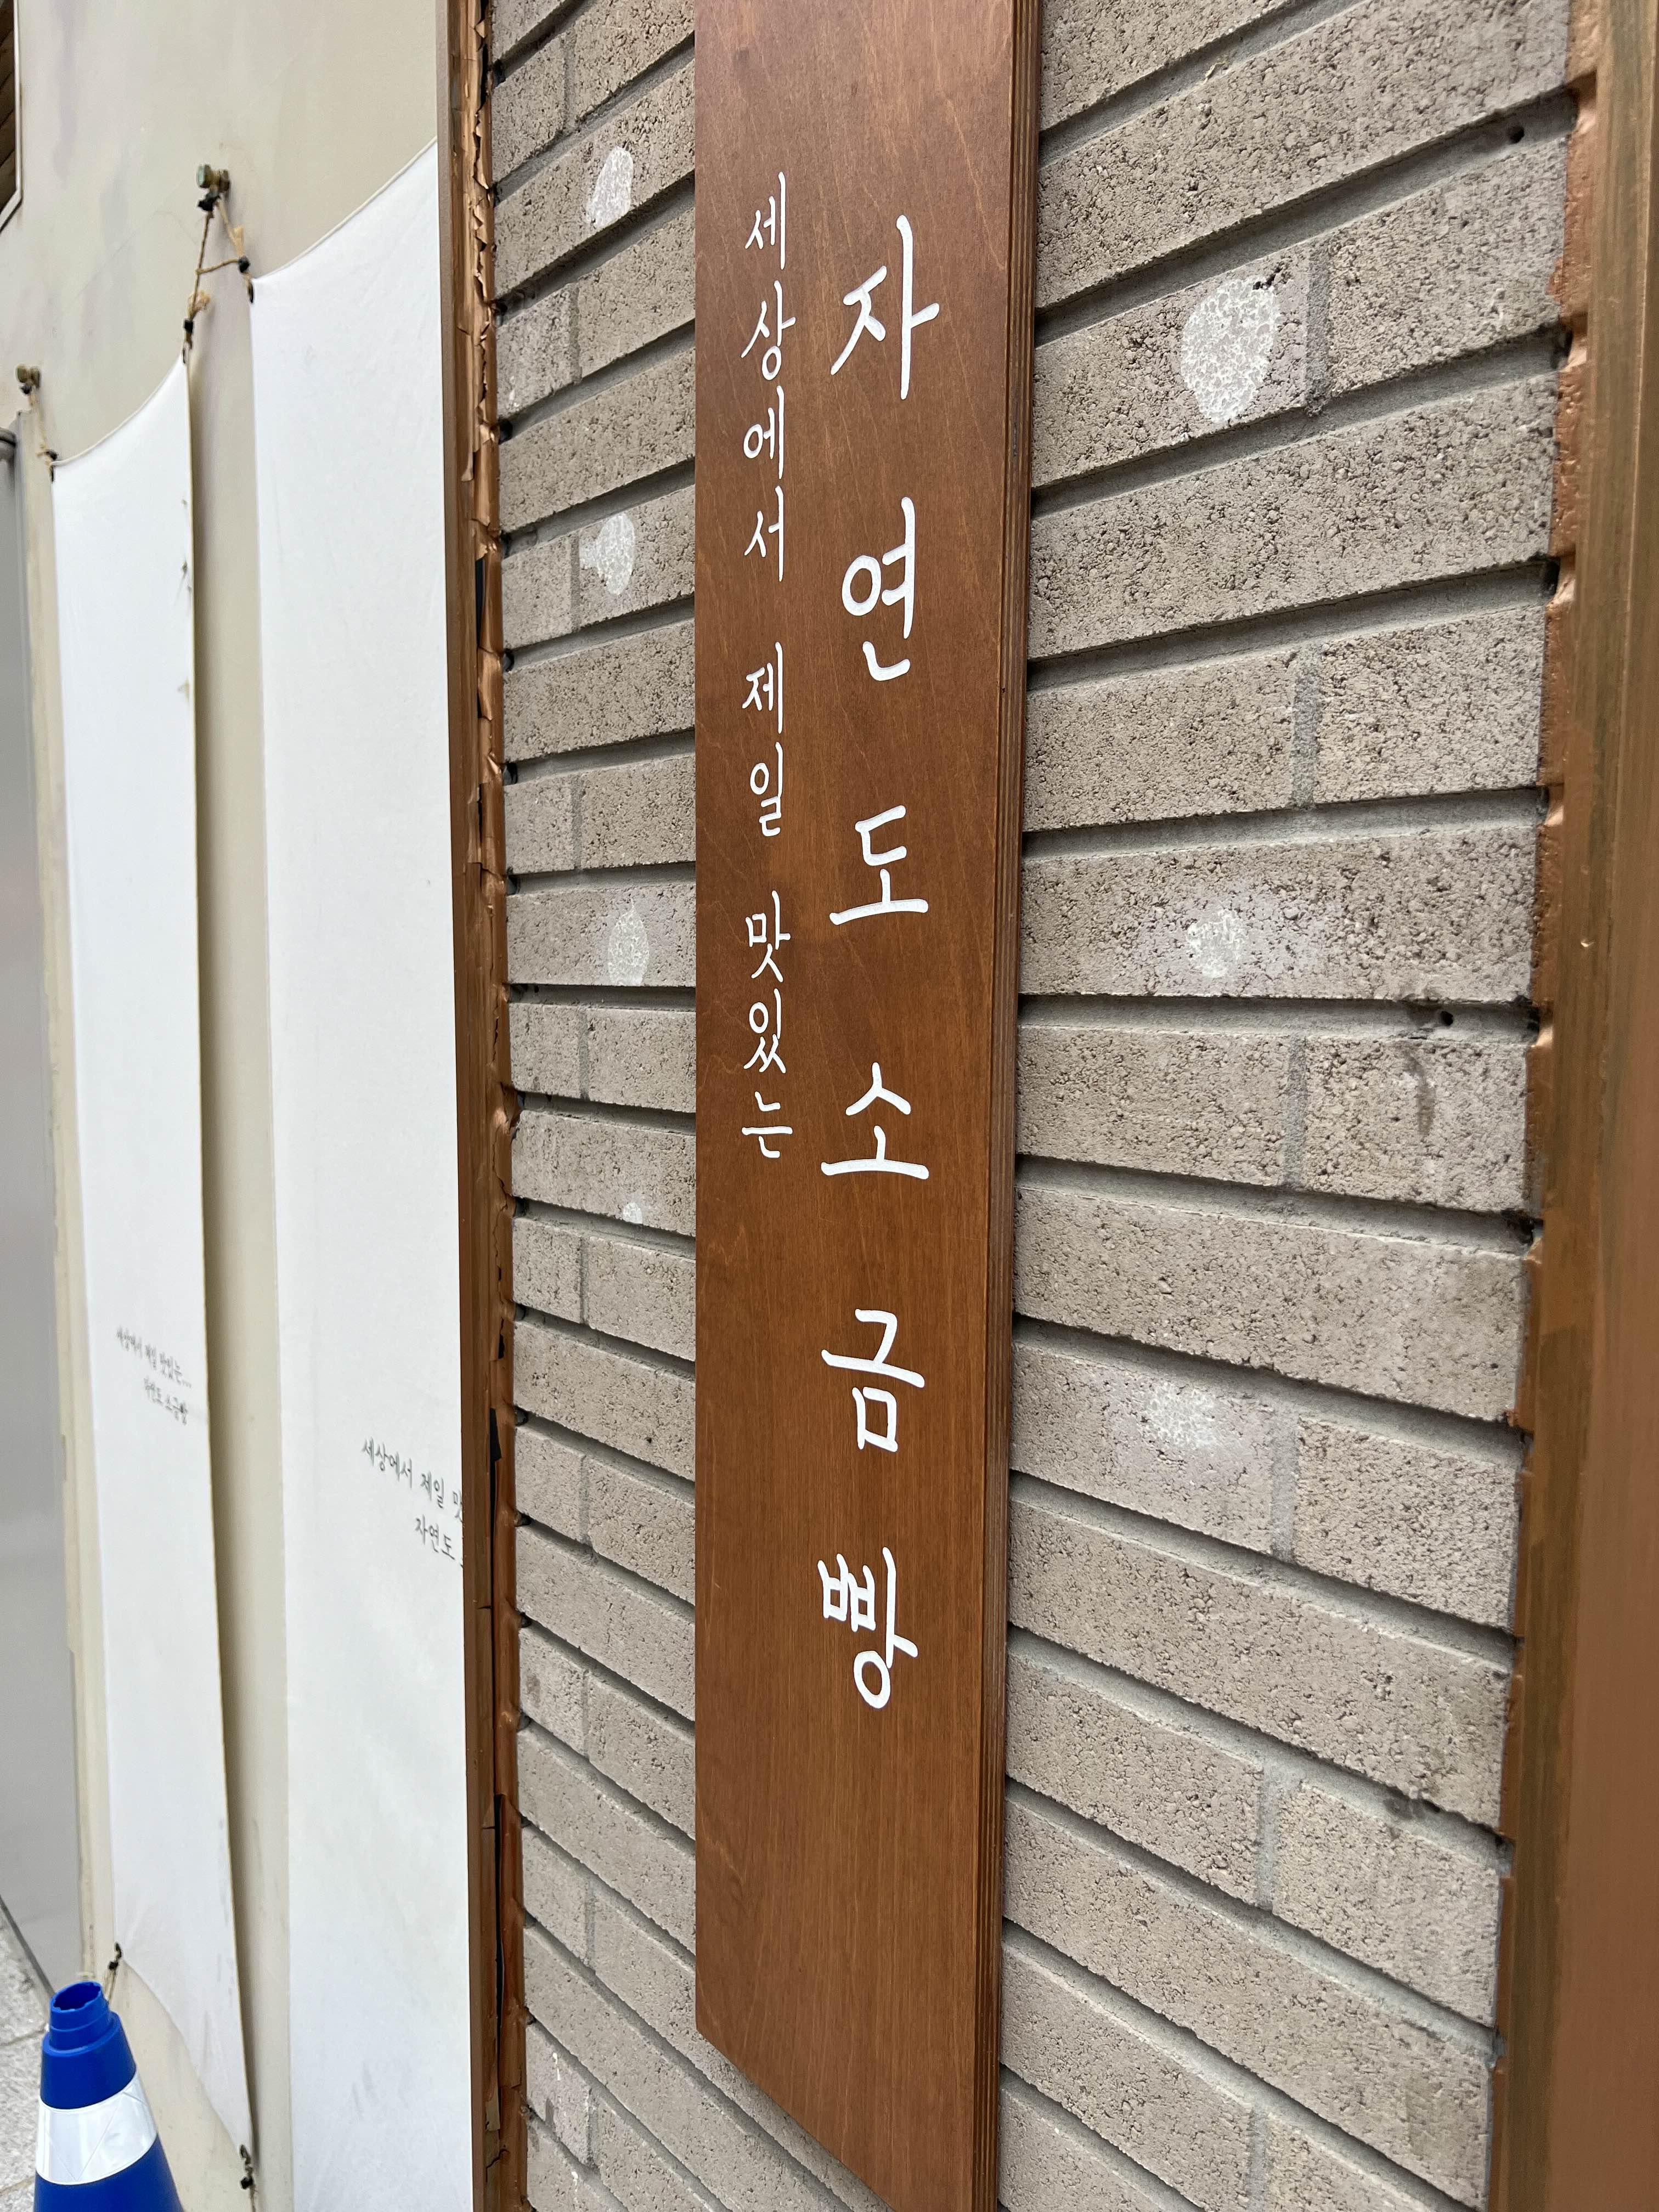 세상에서 제일 맛있는
자연도소금빵
세상에서 제일 맛있는...
자연도 소금빵
세상에서 제일
자연도